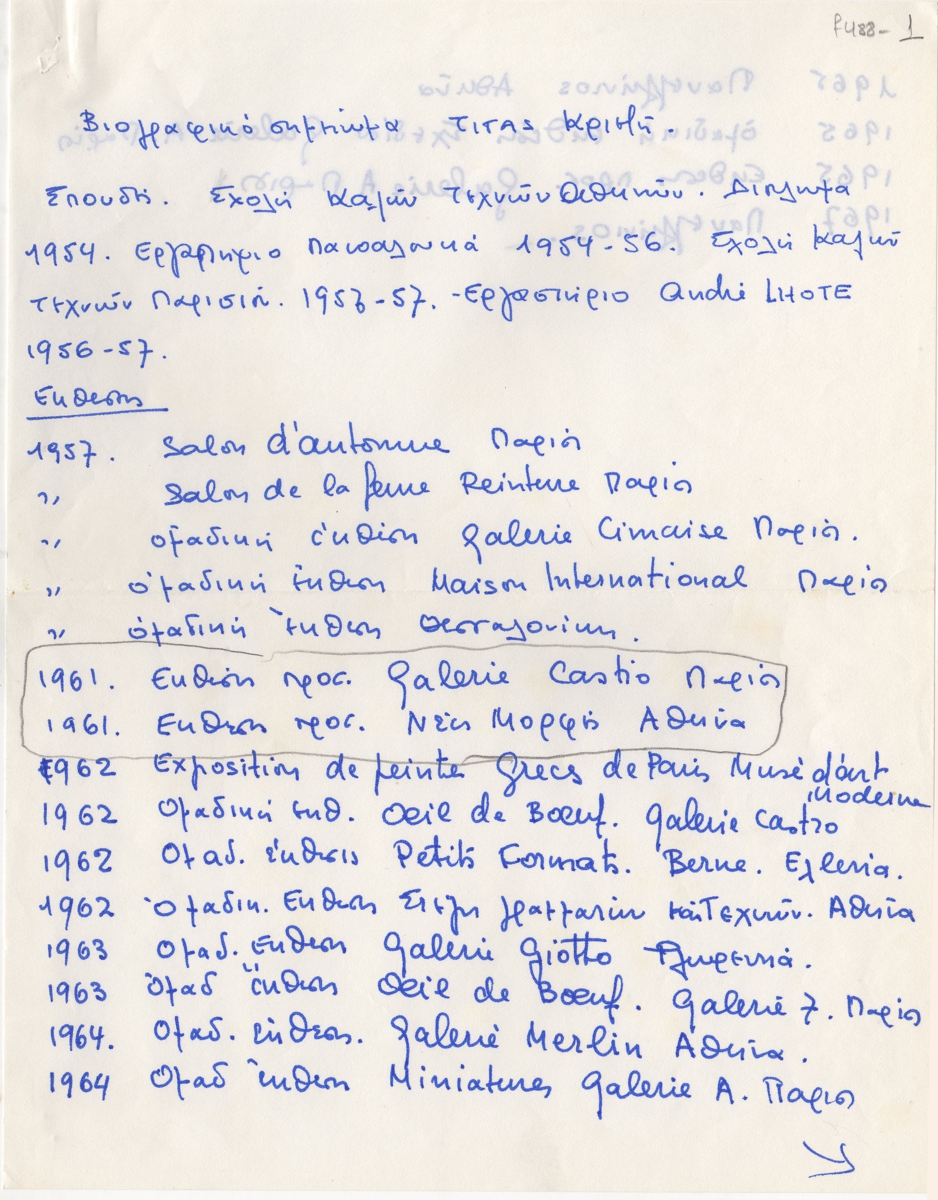 f488-1
Βιογραφικό σημείωμα τιτας κριεζή.
Σπουδή. Σχολή Καλών Τεχνών Αθηνών. Δίπλωμα
1954. Εργαστήριο 1954-56. Σχολή Καλών
Τεχνών Παρισιών. 1953-57. -Εργαστήριο André LHOTE
1956-57.
Εκθεση
1957. Salon d'automne Παρίσι
" Salon de la Jeune Peinture Παρίσι
" ομαδική έκθεση Galerie Cimaise Παρίσι.
" ὁμαδική ἔκθεση Maison International Παρίσι
" ὁμαδική ἔκθεση Θεσσαλονίκη.
1961. Εκθεση προσ. Galerie Castro Παρίσι
1961. Εκθεση προσ. Νέες Μορφές Αθήνα
1962 Exposition de peintres Grecs de Paris Musé d'art
Moderne
1962 Ομαδική εκθ. Oeil de Bœuf. Galerie Castro
1962 Ομαδ. έκθεσις Petits Formats. Berne. Ελβετία.
1962 Ὁμαδικ. Εκθεση Στέγη γραμμάτων και Τεχνών. Αθήνα
1963 Ομαδ. Εκθεση Galerie Giotto
1963 Ὁμαδ ἔκθεση Oeil de Bœuf. Galerie 7. Παρίσι
1964. Ομαδ. έκθεση. Galerie Merlin Αθήνα.
1964 Ομαδ ἔκθεση Miniatures Galerie A. Παρίσι